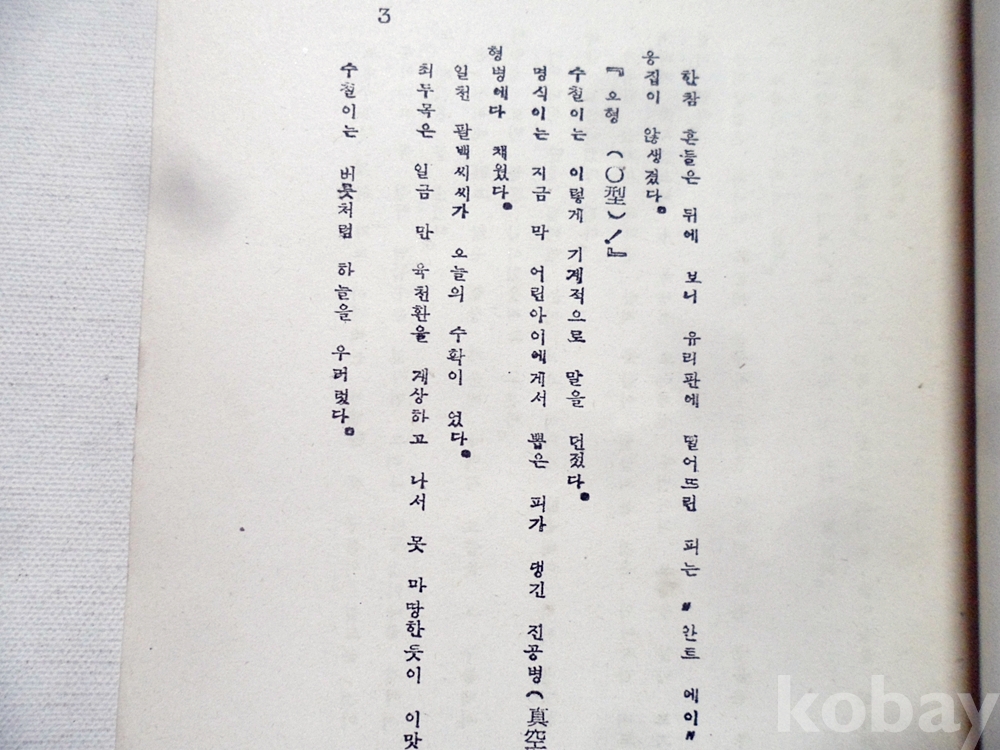 3
한참 흔들은 뒤에 보니 유리판에 떨어뜨린 피는 〃안트 에이〃
응집이 않생겼다.
『오형 (○型)!』
수철이는 이렇게 기계적으로 말을 던젔다.
명식이는 지금 막 어린아이에게서 뽑은 피가 댕긴 진공병(真空
형병에다 채웠다.
일천 팔백씨씨가 오늘의 수확이 었다.
최두목은 일금 만 육천환을 계상하고 나서 못 마땅한듯이 이맛
수철이는 버릇처럼 하늘을 우러렀다.
kobay